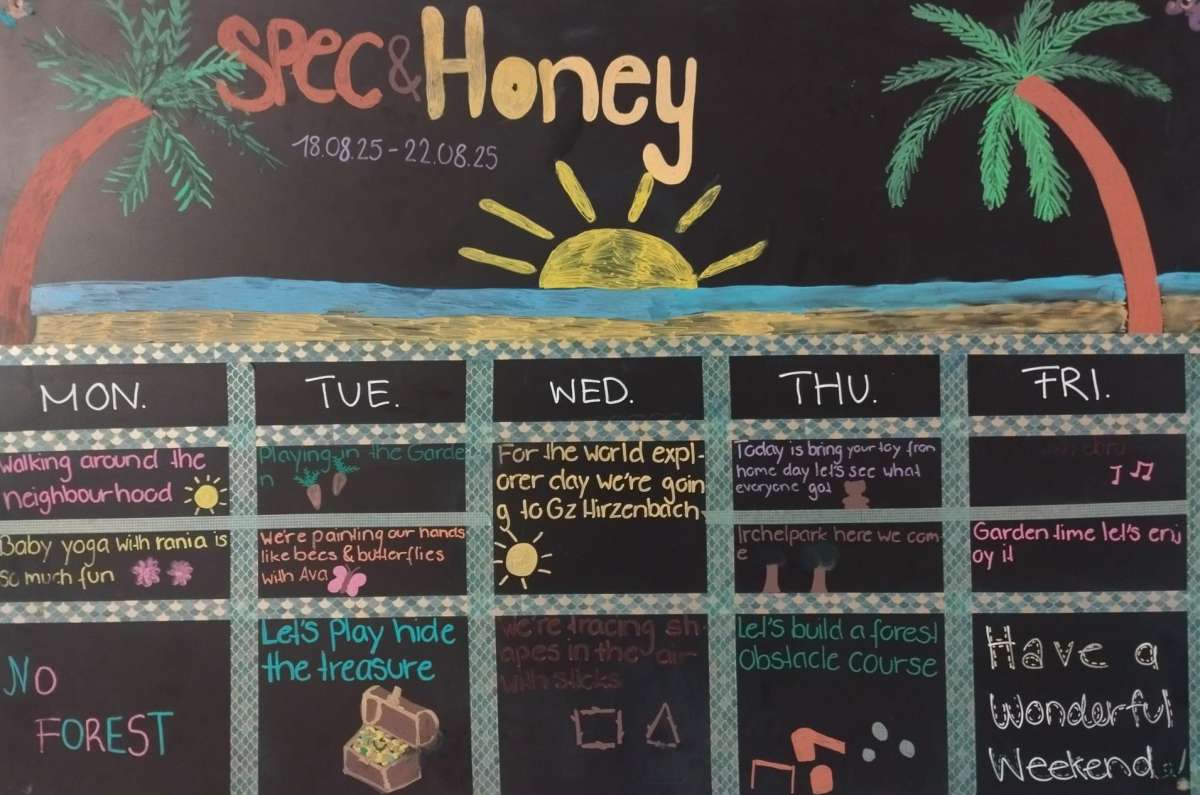 SPEC & Honey
18.08.25 - 22.08.25
MON.
TUE.
WED.
THU.
FRI.
Walking around the
neighbourhood
Playing in the Garde
n
For the world expl-
orer day we're goin
g to Gz Hirzenbach.
Today is bring your toy from
home day let's see what
everyone got
Baby yoga with rania is
so much fun
We're painting our hands
like bees & butterflies
with Ava
Irchelpark here we com
e
Garden time let's enj
oy it
NO
FOREST
Let's play hide
the treasure
We're tracing sh
apes in the air
with sticks
Let's build a forest
obstacle course
Have a
Wonderful
Weekend!